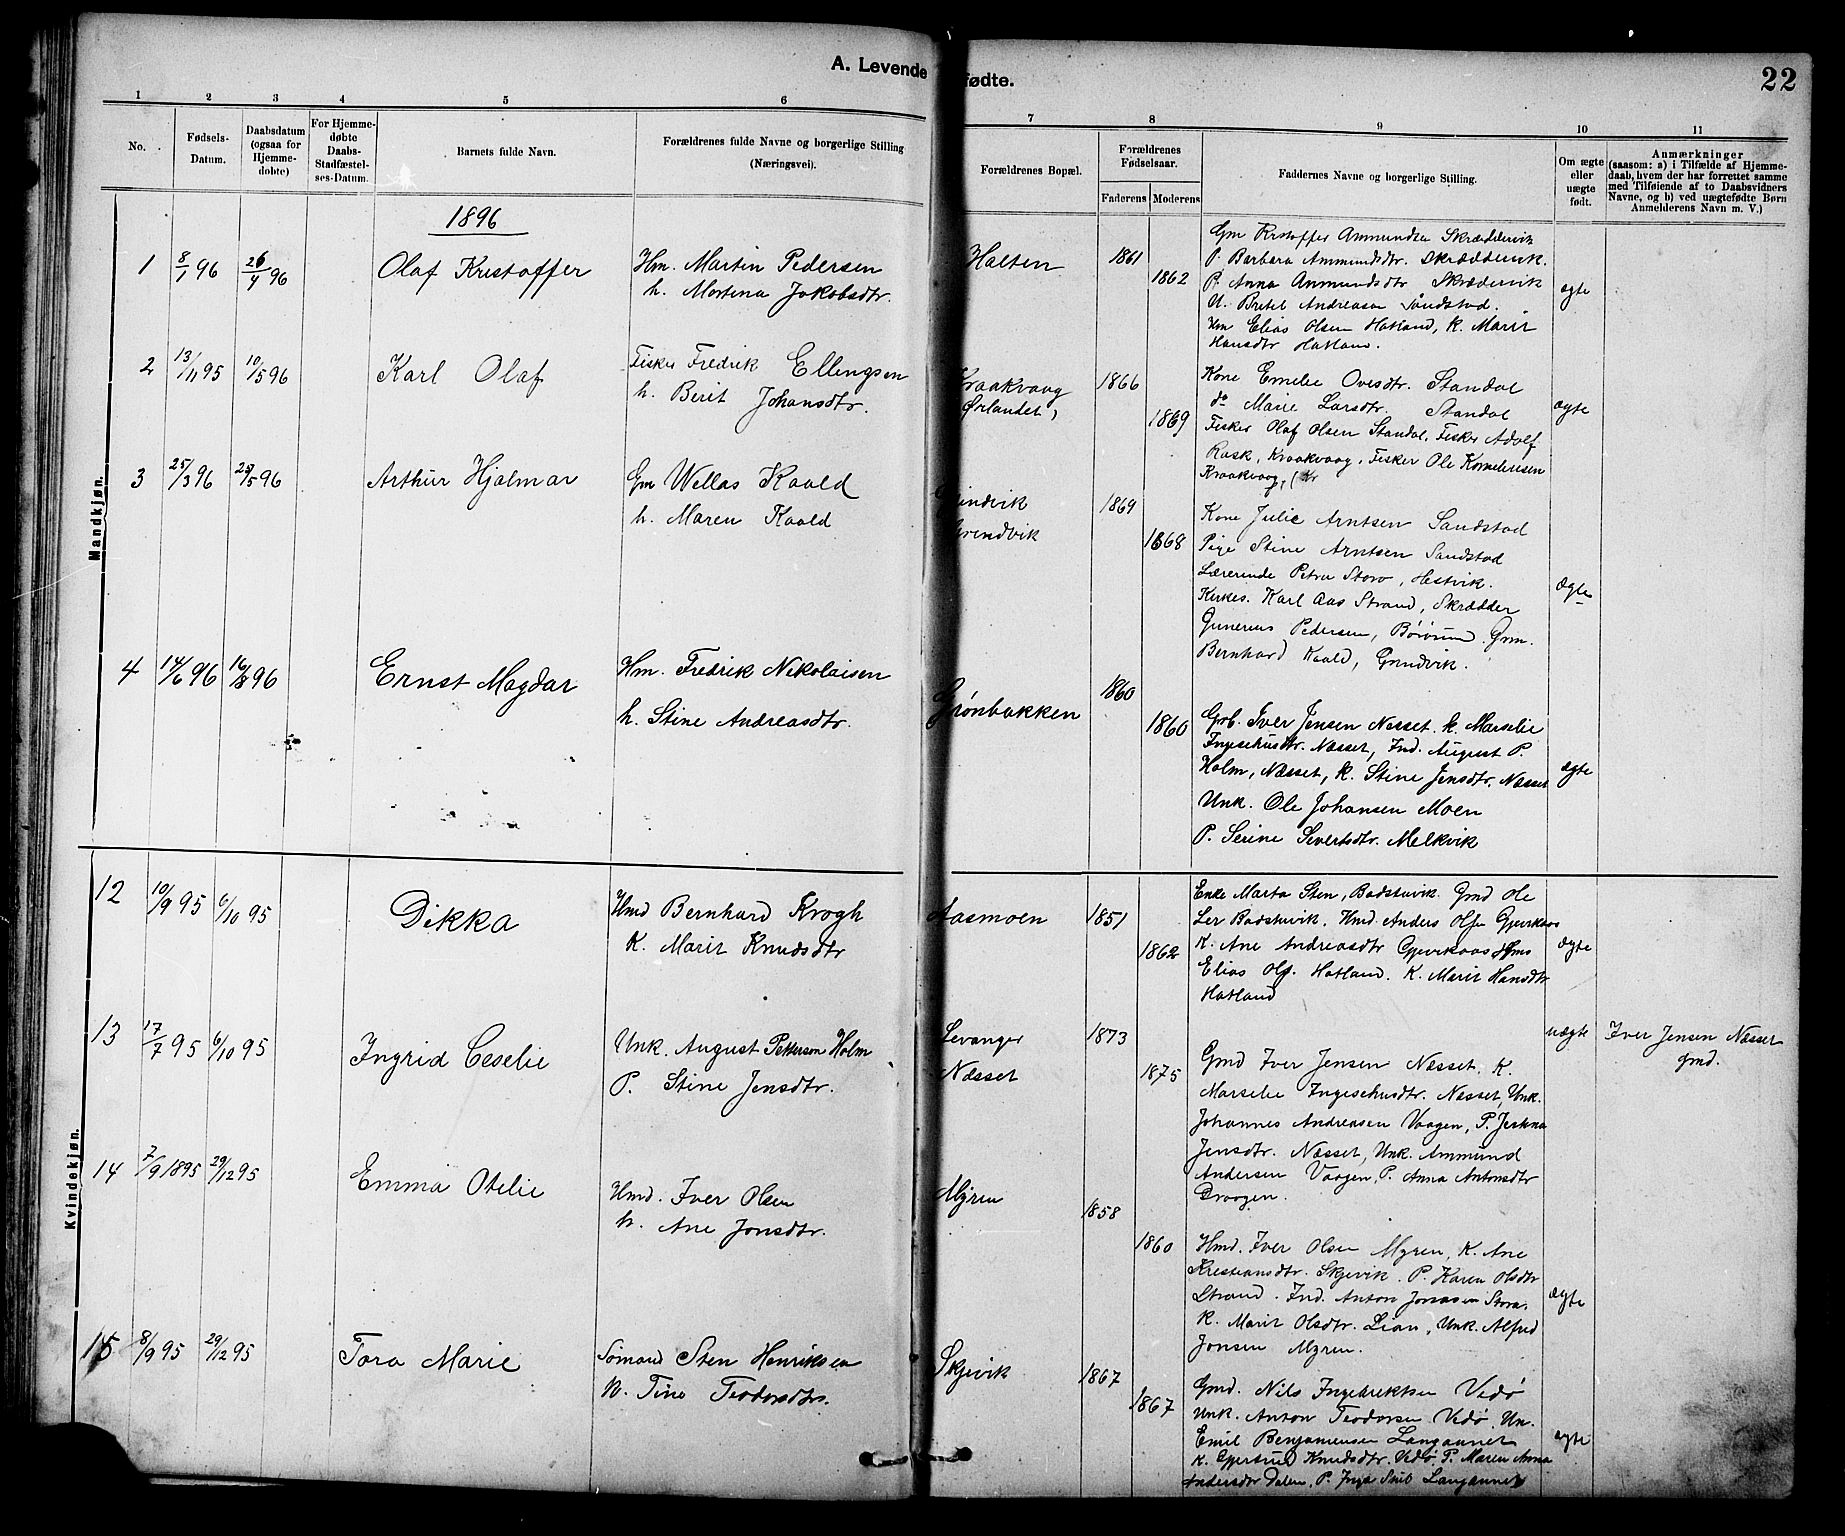 A. Levende fødte.
22
1 2 3 4 5 6 7 8 9 10 11
No.
Fødsels-
Datum.
Daabsdatum
(ogsaa for
Hjemme-
døbte)
For Hjemme-
døbte
Daabs-
Stadfæstel-
ses-Datum.
Barnets fulde Navn.
Forældrenes fulde Navne og borgerlige Stilling
(Næringsvei).
Forældrenes Bopæl.
Forældrenes
Fødselsaar.
Faderens Moderens
Faddernes Navne og borgerlige Stilling.
Om ægte
eller
uægte
født.
Anmærkninger
(saasom: a) i Tilfælde af Hjemme-
daab, hvem der har forrettet samme
med Tilføiende af to Daabsvidners
Navne, og b) ved uægtefødte Børn
Anmelderens Navn m. V.)
Mandkjøn.
1896
1 8/1 96 26/4 96 Olaf Kristoffer
Hm. Martin Pedersen
h. Martina Jakobsdtr.
Halten 1861
1862
Gm Krstoffer Ammundsen Skræddervik
P. Barbara Ammundsdtr. Skrædderik.
P. Anna Ammundsdtr Skrædervik
U. Bretel Andreasen Sandstad.
Hm Elias Olsen Hatland, k. Marit
Hansdtr Hatland.
ægte
2 13/11 95 10/5 96 Karl Olaf
Fisker Fredrik Ellengsen
h. Berit Johansdtr.
Kraakvaag
Ørlandet,
1866
1869
Kone Emelie Ovesdtr. Standal
do Marie Larsdtr. Standal
Fisker Olaf Olsen Standal, Fisker Adolf
Rask, Kraakvaag, Fisker Ole Korneliesen
Kraakvaag,
ægte
3 25/3 96 25/5 96 Arthur Hjalmar
Gm Wellas Kaald
h. Maren Kaald
Grindvik
1869
1868
Kone Julie Arntsen Sandstad
Pige Stine Arntsen Sandstad
Lærerinde Petra Storø, Hestvik.
Kerkes. Karl Aas Strand, Skrædder
Gunerius Pedersen, Børøsund. Gm.
Bernhard Kaald, Grindvik.
Ægte
4 14/6 96 16/8 96 Ernst Magdar
Hm. Fredrik Nikolaisen
h. Stine Andreasdtr.
Grønbakken 1860
1860
Grb. Iver Jensen Næsset. k. Marselie
Ingesehusdtr. Næsset, Ind. August P.
Holm, Næsset, k. Stine Jensdtr. Næsset
Unk. Ole Johansen Moen
P. Serine Severtsdtr. Melkvik
ægte
Kvindekjøn.
12 10/9 95 6/10 95 Dikka
Hmd Bernhard Krogh
K. Marit Knudsdtr
Aasmoen 1851
1862
Enke Marta Sten, Badstuvik. Gmd Ole
Ler Badstuvik. Hmd. Anders Olsen Gjevikaas
K. Ane Andreasdtr Gjevikaas Hms
Elias Ols. Hatland. K. Marit Hansdtr
Hatland
ægte
13 17/7 95 6/10 95 Ingrid Ceselie
Unk. August Pettersen Holm
P. Stine Jensdtr.
Levanger
Næsset
1873
1875
Gmd Iver Jensen Næsset. K.
Marselie Ingesehusdtr. Næsset, Unk.
Johannes Andreasen Vaagen, P. Jertina
Jensdtr. Næsset, Unk. Ammund
Andersen Vaagen, P. Anna Antonsdtr
Draagen.
uægte
Iver Jensen Næsset
gmd.
14 7/9 1895 29/12 95 Emma Otelie
Hmd. Iver Olsen
h. Ane Jonsdtr.
Myren 1858
1860
Hmd. Iver Olsen Myren, K. Ane
Kristiansdtr. Skjevik. P. Karen Olsdtr
Strand. Ind. Anton Jonasen Storø.
K. Marit Olsdtr. Lian, Unk. Alfred
Jonsen Myren.
ægte
15 8/9 95 29/12 95 Tora Marie
Sømand Sten Henriksen
h. Tine Teodorsdtr.
Skjevik 1867
1867
Gmd. Nils Ingebrektsen Vedø
Unk. Anton Teodorsen Vedø. Un.
Emil Benjaminsen Langannet
K. Gjertrud Knudsdtr. Vedø P. Maren Anna
Andersdtr Dalen, P. Inge Skib Langannet
ægte